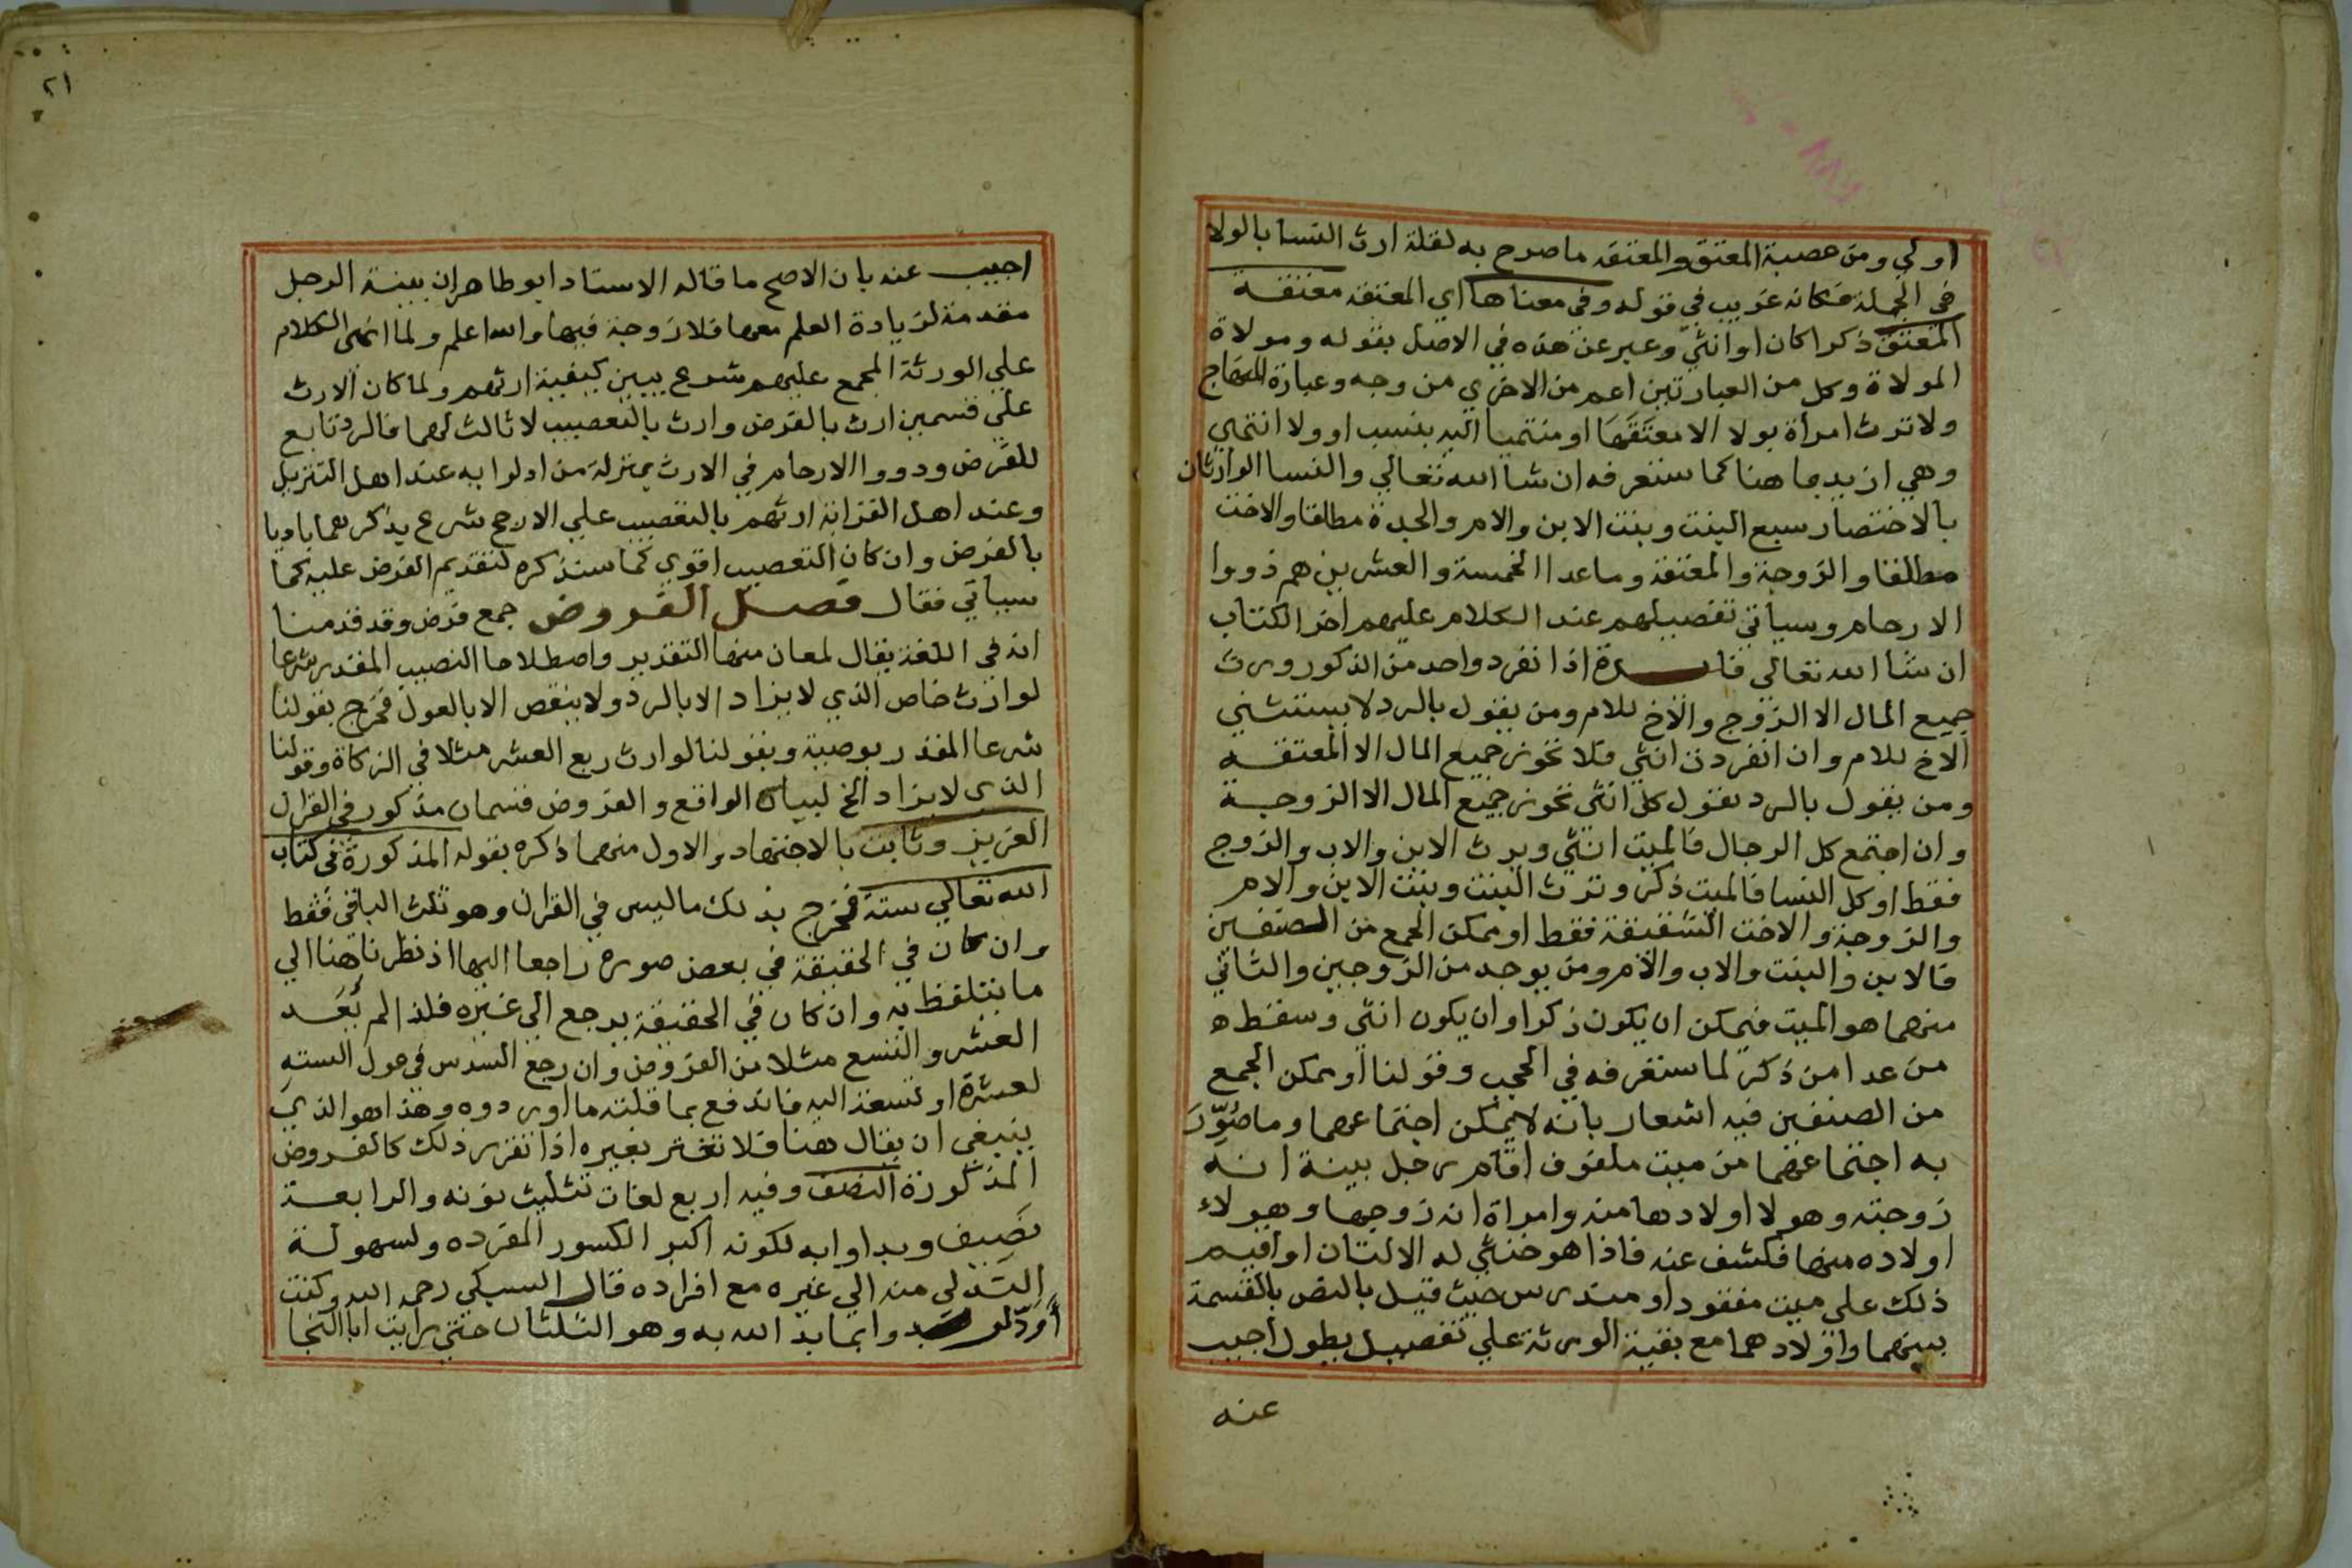 اولي ومن عصبة المعتق والمعتقه ما صرح به لقلة ارث النسا بالولا
في الجملة فكانه غريب في قوله وفي معناها اي المعتقه معتقة
المعتق ذكرا كان او انثي وعبر عن هذه في الاصل بقوله ومولاة
المولاة وكل من العبارتين اعم من الاخري من وجه وعبارة المنهاج
ولا ترث امراة بولا الا معتَقَهَا او منتميا اليه بنسب او ولا انتهي
وهي ازيد مما هنا كما ستعرفه ان شا الله تعالي والنسا الوارثات
بالاختصار سبع البنت وبنت الابن والام والجدة مطلقا والاخت
مطلقا والزوجة والمعتقة وما عدا الخمسة والعشرين هم ذووا
الارحام وسياتي تفصيلهم عند الكلام عليهم اخر الكتاب
ان شا الله تعالي فايدة اذا انفرد واحد من الذكور ورث
جميع المال الا الزوج والاخ للام ومن يقول بالرد لا يستثني
الاخ للام وان انفردت انثي فلا تحوز جميع المال الا المعتقة
ومن يقول بالرد يقول كل انثي تحوز جميع المال الا الزوجة
وان اجتمع كل الرجال فالميت انثي ويرث الابن والاب والزوج
فقط او كل النسا فالميت ذكر وترث البنت وبنت الابن والام
والزوجة والاخت الشقيقة فقط او ممكن الجمع من الصنفين
فالابن والبنت والاب والام ومن يوجد من الزوجين والثاني
منهما هو الميت فيمكن ان يكون ذكرا وان يكون انثي وسقط
من عدا من ذكر لما ستعرفه في الحجب وقولنا او ممكن الجمع
من الصنفين فيه اشعار بانه لا يمكن اجتماعهما وما صُوِّرَ
به اجتماعهما من ميت ملفوف اقام رجل بينة انه
زوجته وهولا اولادها منه وامراة انه زوجها وهولاء
اولاده منها فكشف عنه فاذا هو خنثي له الالتان او اقيم
ذلك علي ميت مفقود او مندرس حيث قيل بالنص بالقسمة
بينهما واولادهما مع بقية الورثة علي تفصيل يطول اجيب
عنه
٢١
اجيب عنه بان الاصح ما قاله الاستاد ابو طاهر ان بينة الرجل
مقدمة لزيادة العلم معها فلا زوجة فيها والله اعلم ولما انهي الكلام
علي الورثة المجمع عليهم شرع يبين كيفية ارثهم ولما كان الارث
علي قسمين ارث بالفرض وارث بالتعصيب لا ثالث لهما فالرد تابع
للفرض وذووا الارحام في الارث بمنزلة من ادلوا به عند اهل التنزيل
وعند اهل القرابة ارثهم بالتعصيب علي الارجح شرع يذكرهما باديا
بالفرض وان كان التعصيب اقوي كما سنذكره لتقديم الفرض عليه كما
سياتي فقال فصل الفروض جمع فرض وقد قدمنا
انه في اللغة يقال لمعان منها التقدير واصطلاحا النصيب المقدر شرعا
لوارث خاص الذي لا يزاد الا بالرد ولا ينقص الا بالعول فخرج بقولنا
شرعا المقدر بوصية وبقولنا لوارث ربع العشر مثلا في الزكاة وقولنا
الذي لا يزاد الخ لبيان الواقع والفروض قسمان مذكور في القران
العزيز وثابت بالاجتهاد والاول منهما ذكره بقوله المذكورة في كتاب
الله تعالي ستة فخرج بذلك ما ليس في القران وهو ثلث الباقي فقط
وان كان في الحقيقة في بعض صوره راجعا اليها اذ نظرنا هنا الي
ما يتلفظ به وان كان في الحقيقة يرجع الي غيره فلذا لم يُعَد
العشر والتسع مثلا من الفروض وان رجع السدس في عول السته
لعشرة او تسعة اليه فاندفع بما قلته ما اوردوه وهذا هو الذي
ينبغي ان يقال هنا فلا تغتر بغيره اذا تقرر ذلك كالفروض
المذكورة النصف وفيه اربع لغات تثليث نونه والرابعة
نَصِيف وبداوا به لكونه اكبر الكسور المفرده ولسهولة
التدلي منه الي غيره مع افراده قال السبكي رحمه الله وكنت
اودّ لو وابما بدا الله به وهو الثلثان حتي رايت ابا النجا